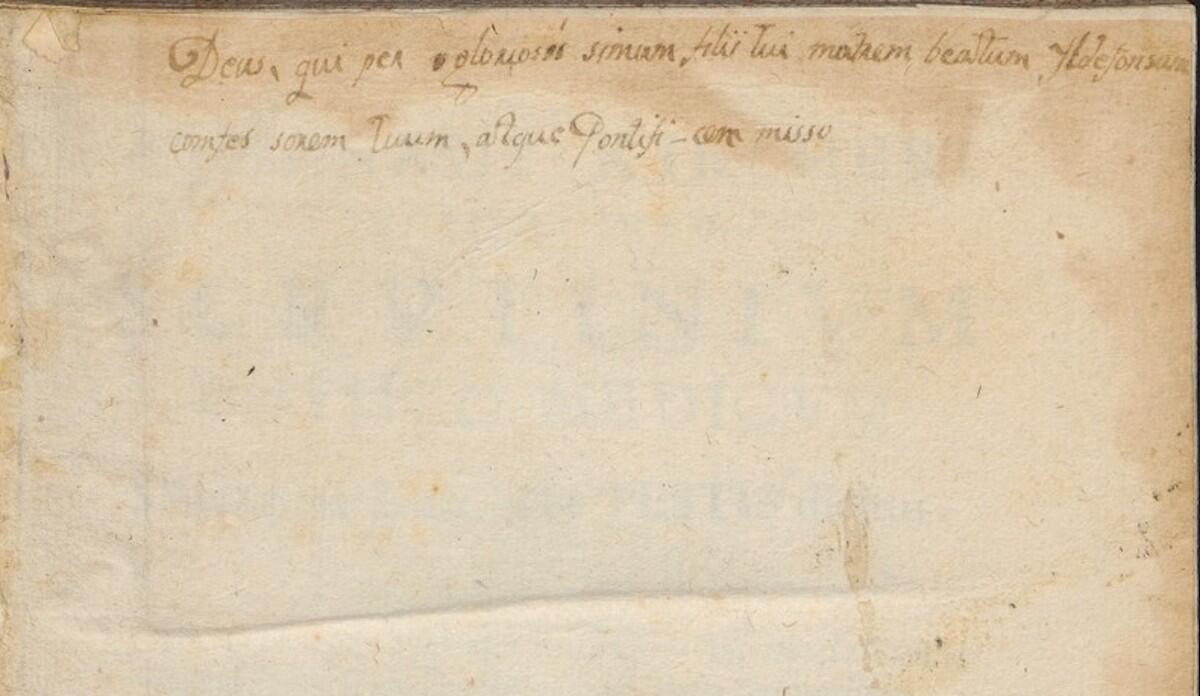 Deus, qui per gloriosis simam filii tui matrem beatum Yldefonsum
comfes sorem tuum, atque Pontifi-cem misso